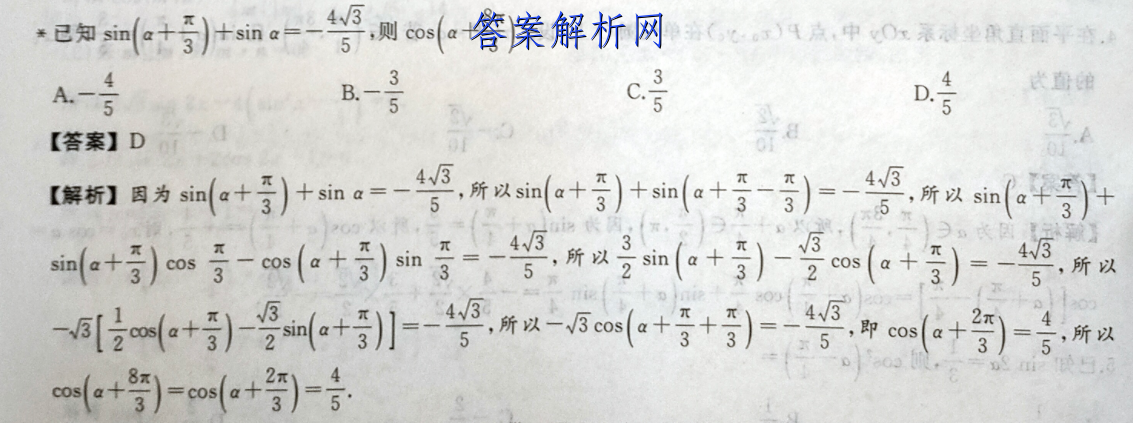 *已知 sin(α+π/3)+sin α=-4√3/5,则 cos(α+8π/3)
答案解析网
A.-4/5 B.-3/5 C.3/5 D.4/5
【答案】D
【解析】因为 sin(α+π/3)+sin α=-4√3/5,所以 sin(α+π/3)+sin(α+π/3-π/3)=-4√3/5,所以 sin(α+π/3)+
sin(α+π/3) cos π/3-cos(α+π/3) sin π/3=-4√3/5,所以 3/2 sin(α+π/3)-√3/2 cos(α+π/3)=-4√3/5,所以
-√3[1/2 cos(α+π/3)-√3/2 sin(α+π/3)]=-4√3/5,所以-√3 cos(α+π/3+π/3)=-4√3/5,即 cos(α+2π/3)=4/5,所以
cos(α+8π/3)=cos(α+2π/3)=4/5.